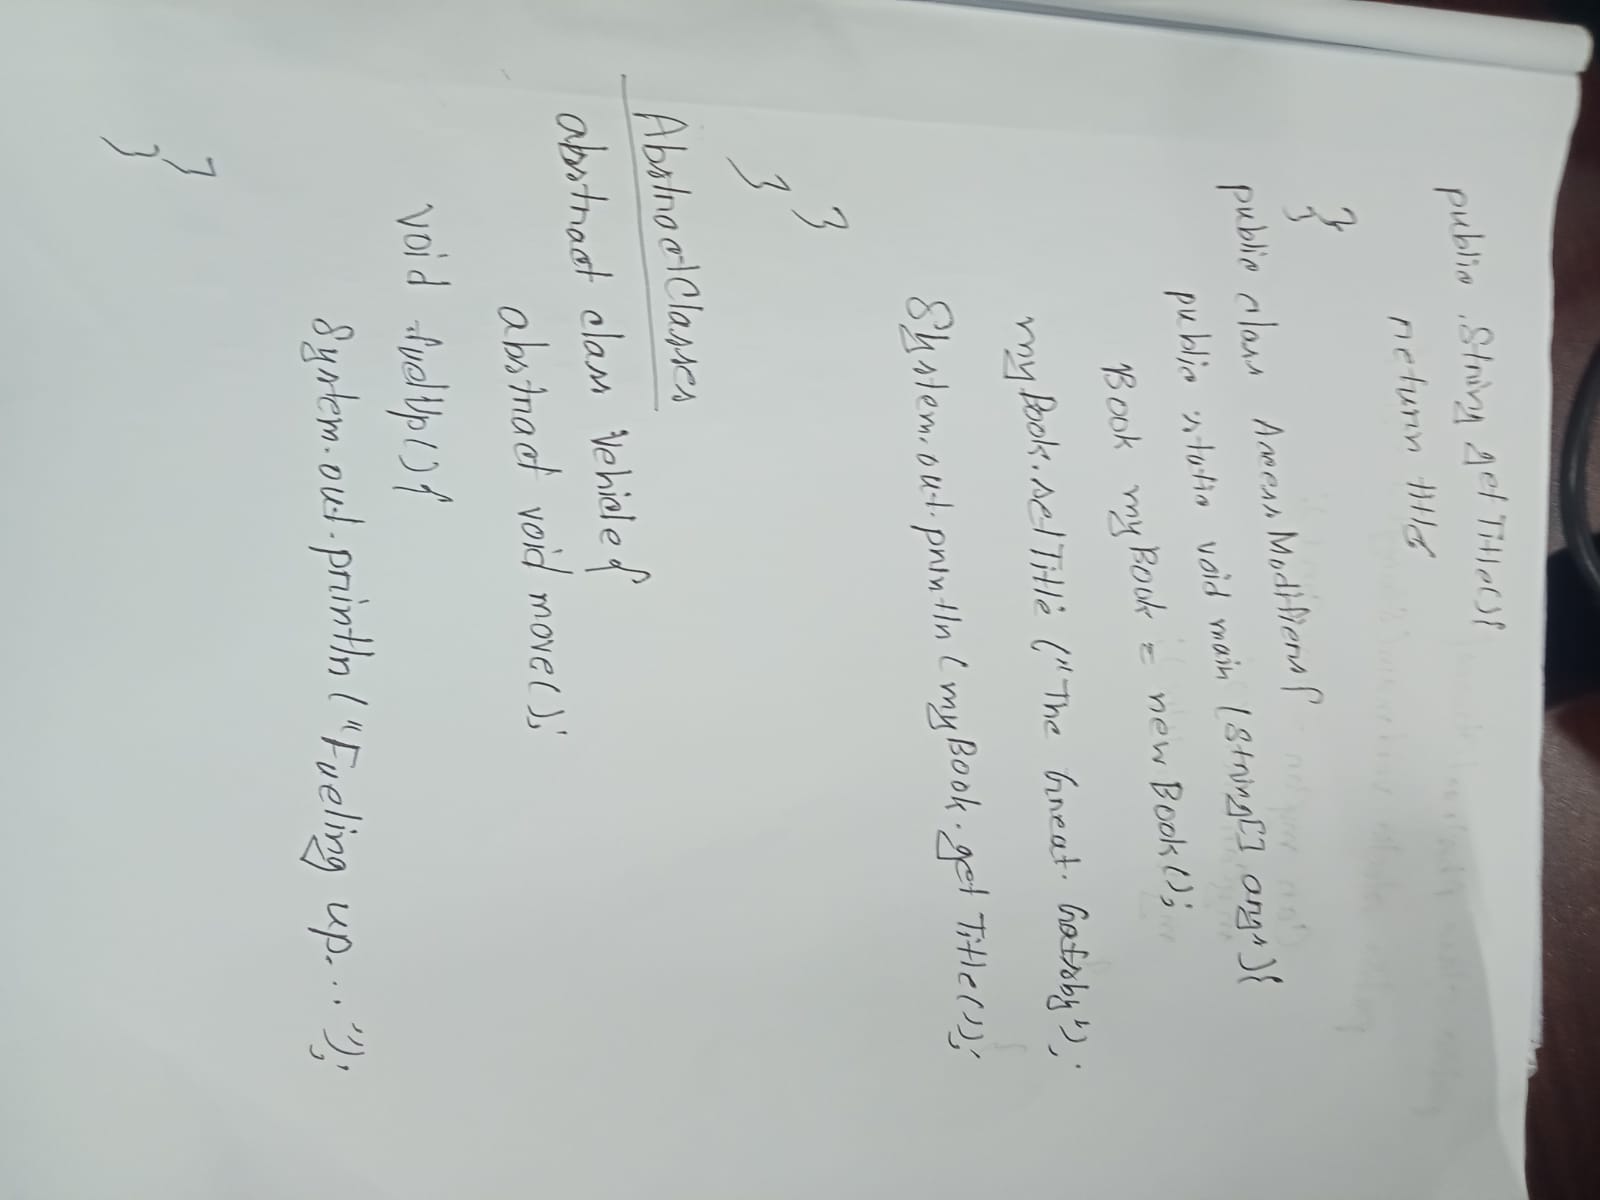 public String getTitle(){
return title
}
}
public class AccessModifiers{
public static void main (String[] args){
Book myBook = new Book();
myBook.setTitle ("The Great Gatsby");
System.out.println(myBook.getTitle());
}
}
Abstract Classes
abstract class Vehicle{
abstract void move();
void fuelUp(){
System.out.println("Fueling up...");
}
}